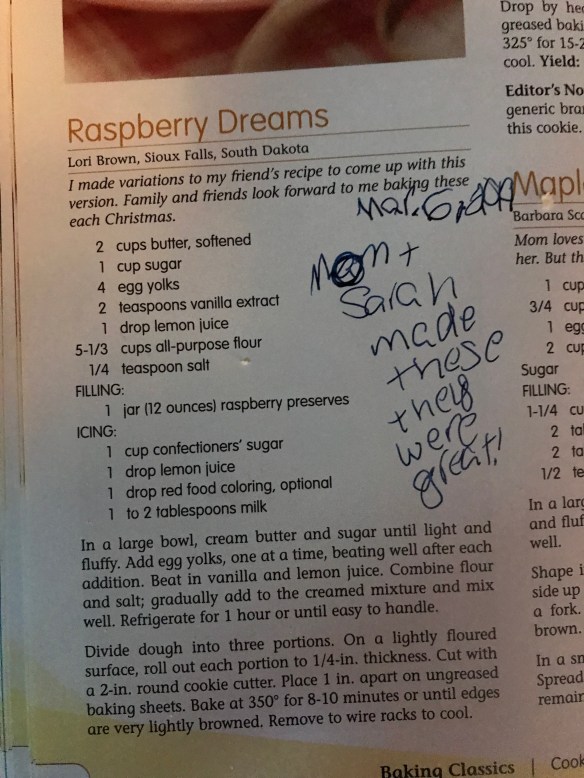 Raspberry Dreams
Lori Brown, Sioux Falls, South Dakota
I made variations to my friend's recipe to come up with this
version. Family and friends look forward to me baking these
each Christmas.
2 cups butter, softened
1 cup sugar
4 egg yolks
2 teaspoons vanilla extract
1 drop lemon juice
5-1/3 cups all-purpose flour
1/4 teaspoon salt
FILLING:
1 jar (12 ounces) raspberry preserves
ICING:
1 cup confectioners' sugar
1 drop lemon juice
1 drop red food coloring, optional
1 to 2 tablespoons milk
Mar. 6,
Mom +
Sarah
made
these
they
were
great!
In a large bowl, cream butter and sugar until light and
fluffy. Add egg yolks, one at a time, beating well after each
addition. Beat in vanilla and lemon juice. Combine flour
and salt; gradually add to the creamed mixture and mix
well. Refrigerate for 1 hour or until easy to handle.
Divide dough into three portions. On a lightly floured
surface, roll out each portion to 1/4-in. thickness. Cut with
a 2-in. round cookie cutter. Place 1 in. apart on ungreased
baking sheets. Bake at 350° for 8-10 minutes or until edges
are very lightly browned. Remove to wire racks to cool.
Drop by
greased
325° for
cool. Yield:
Editor's
generic
this cookie.
Barbara
Mom loves
her. But
1 cup
3/4 cup
1
2
Sugar
FILLING:
1-1/4
2
2
1/2
In a
and
well.
Shape
side up
a fork.
brown.
In a
Spread
Baking Classics |